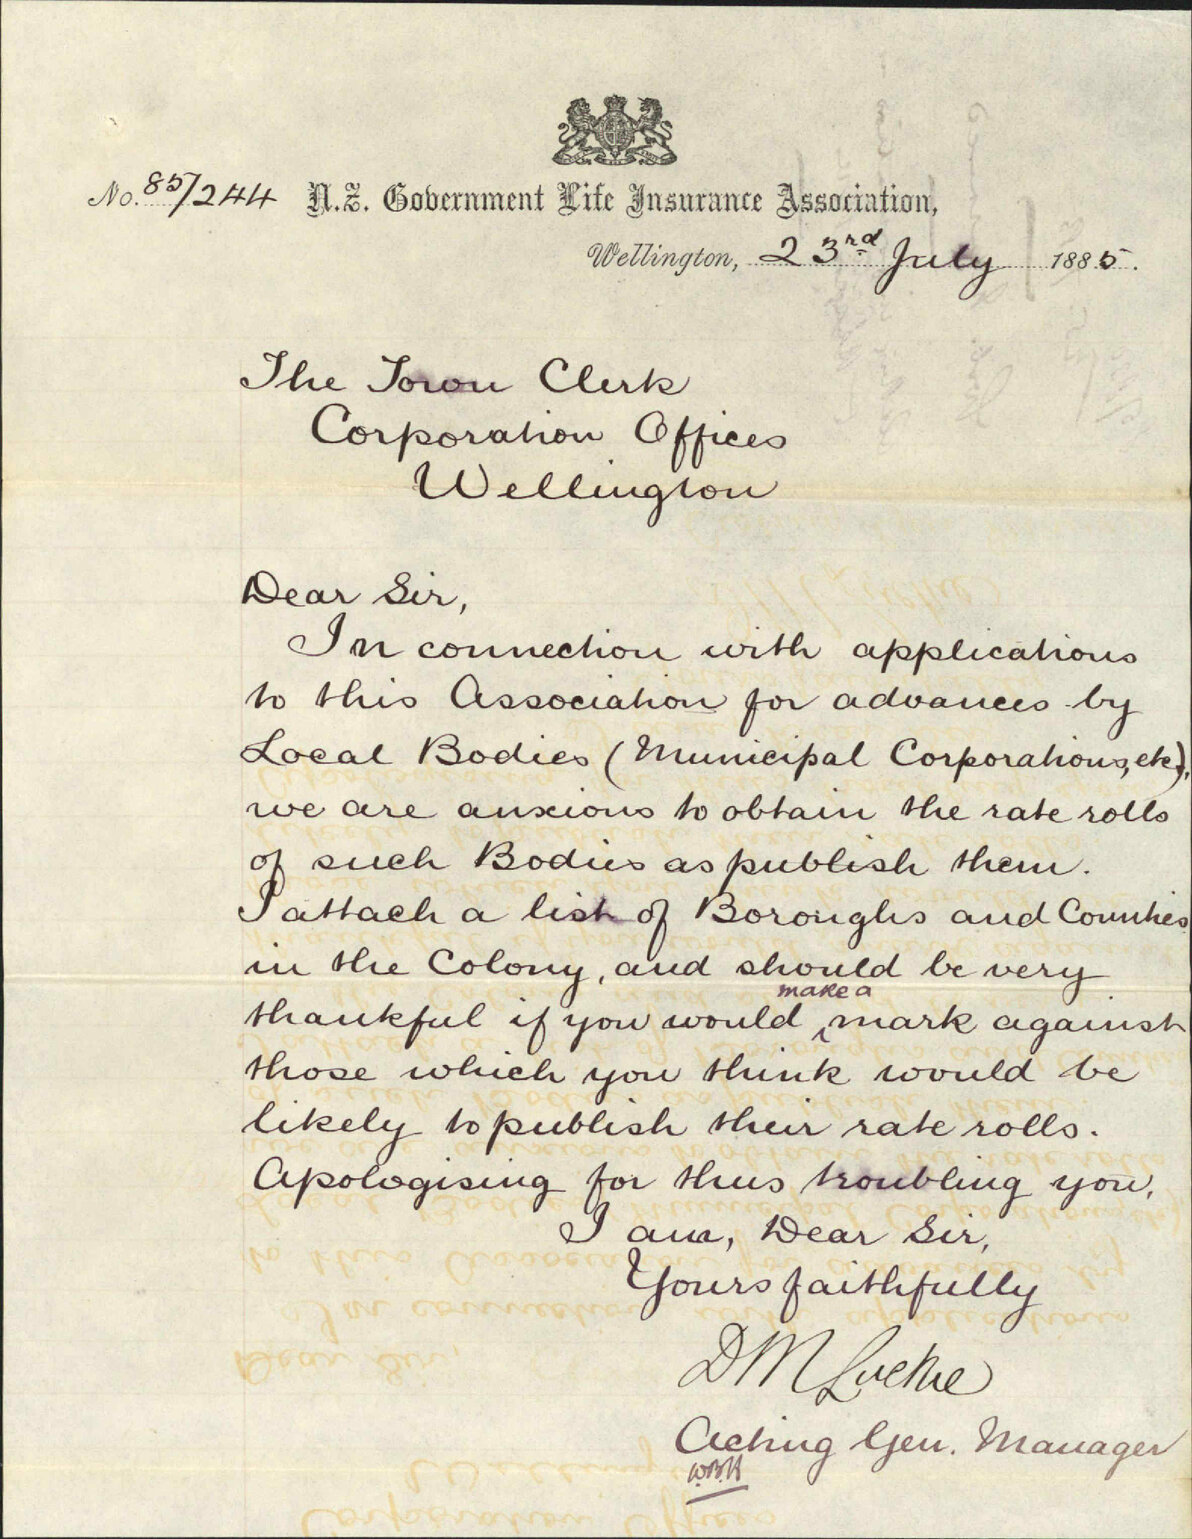 No. 85/244 N.Z. Government Life Insurance Association,
Wellington, 23rd July 1885.
The Town Clerk
Corporation Offices
Wellington
Dear Sir,
In connection with applications
to this Association for advances by
Local Bodies (Municipal Corporations, etc),
we are anxious to obtain the rate rolls
of such Bodies as publish them.
I attach a list of Boroughs and Counties
in the Colony, and should be very
make a
thankful if you would mark against
those which you think would be
likely to publish their rate rolls.
Apologising for thus troubling you,
I am, Dear Sir,
Yours faithfully
D M Luckie
Acting Gen. Manager